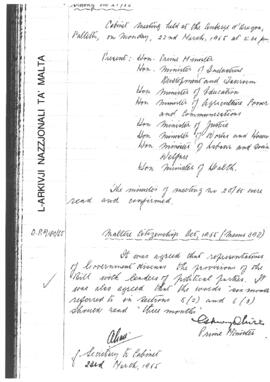 L-ARKIVJI NAZZJONALI TA' MALTA
Cabinet meeting held at the Auberge d'Aragon,
Valletta, on Monday, 22nd March, 1965 at
Present: Hon. Prime Minister
Hon. Minister of Industrial
Development and Tourism
Hon Minister of Education
Hon Minister of Agriculture Power
and Communications
Hon Minister of Justice
Hon Minister of Works and House
Hon Minister of Labour and Social
Welfare
Hon Minister of Health.
The minutes of meeting no 20/65 were
read and confirmed.
Maltese Citizenship Act, 1965 (Memo 392)
It was agreed that representatives
of Government discuss the provisions of the
Bill with leaders of political parties. It
was also agreed that the words
referred to in sections 5(2) and 6(2)
should read "three months".
Prime Minister
Secretary to Cabinet
22nd March, 1965